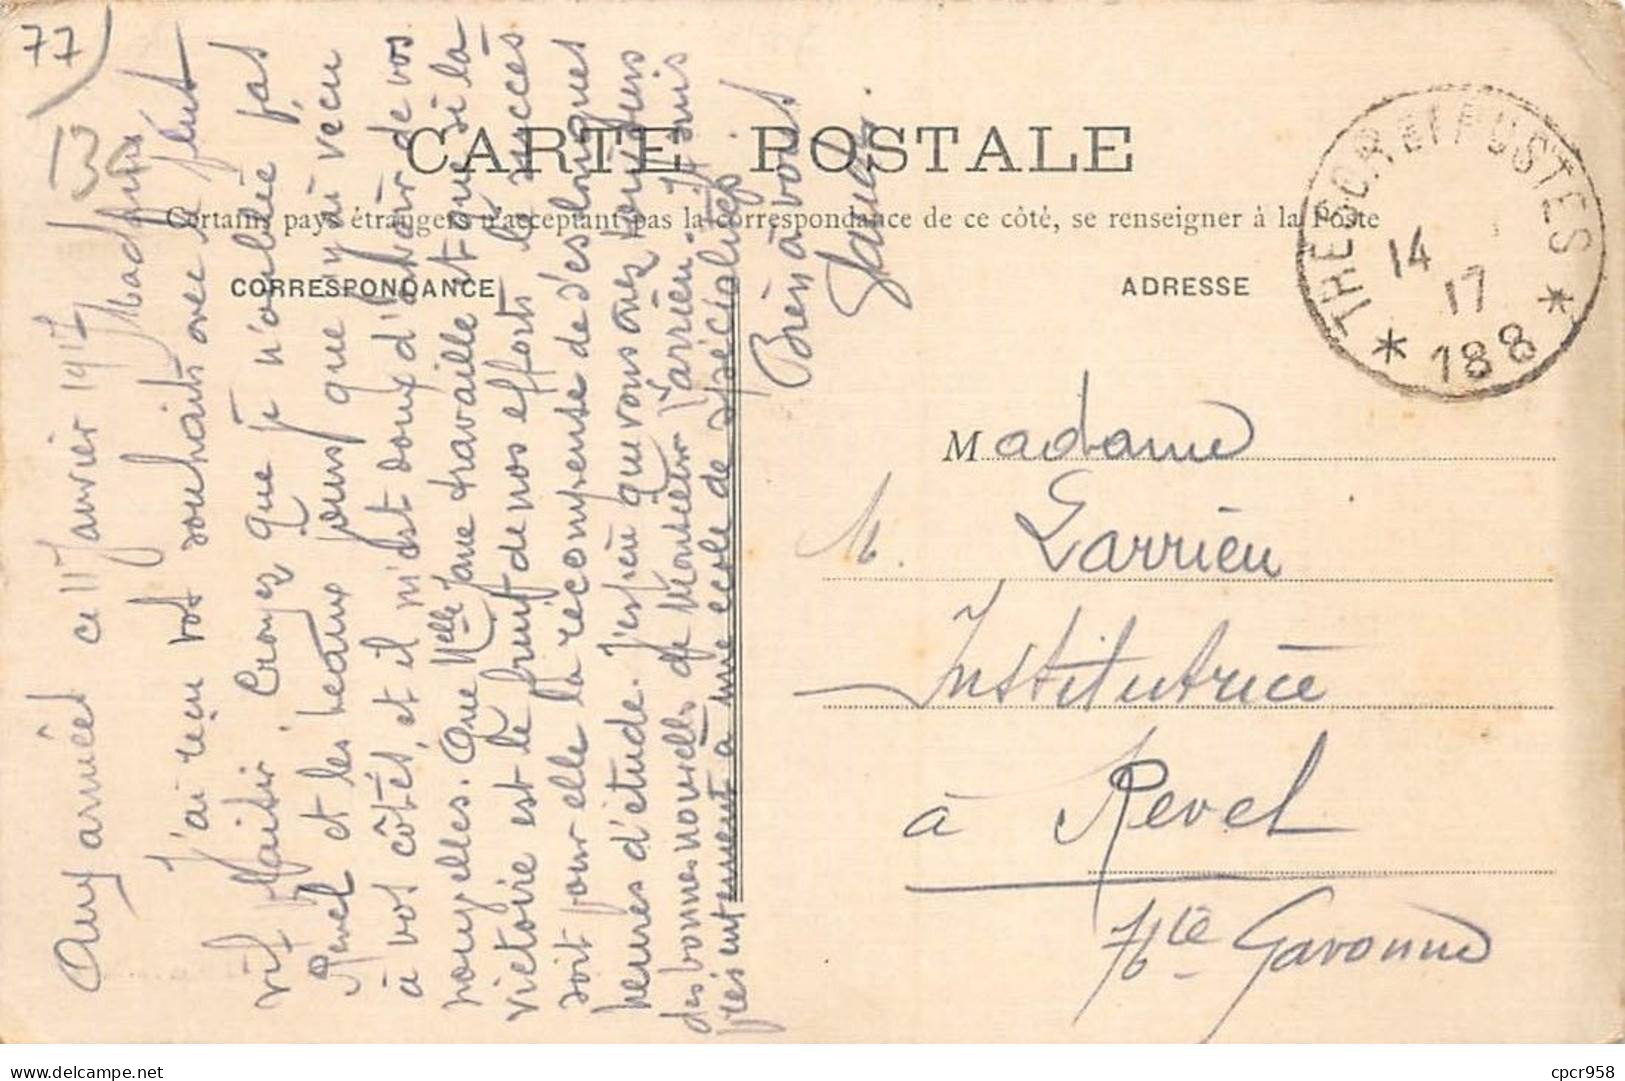 77
13a
CARTE POSTALE
Certains pays étrangers n'acceptent pas la correspondance de ce côté, se renseigner à la Poste
CORRESPONDANCE
ADRESSE
TRESOR ET POSTES
14
17
* 188 *
Aux armées ce 11 Janvier 1917
Madame
J'ai reçu vos souhaits avec le plus
vif plaisir. Croyez que je n'oublie pas
Revel et les beaux jours que j'ai vécu
à vos côtés, et il m'est doux d'avoir de vos
nouvelles. Que Melle Jane travaille et que si la
victoire est le fruit de nos efforts le succès
soit pour elle la récompense de ses longues
heures d'étude. J'espère que vous avez toujours
des bonnes nouvelles de Monsieur Larrieu. Je suis
présentement à une école de spécialités
Bien à vous
Madame
M. Larrieu
Institutrice
à Revel
Hte Garonne
cpcr958